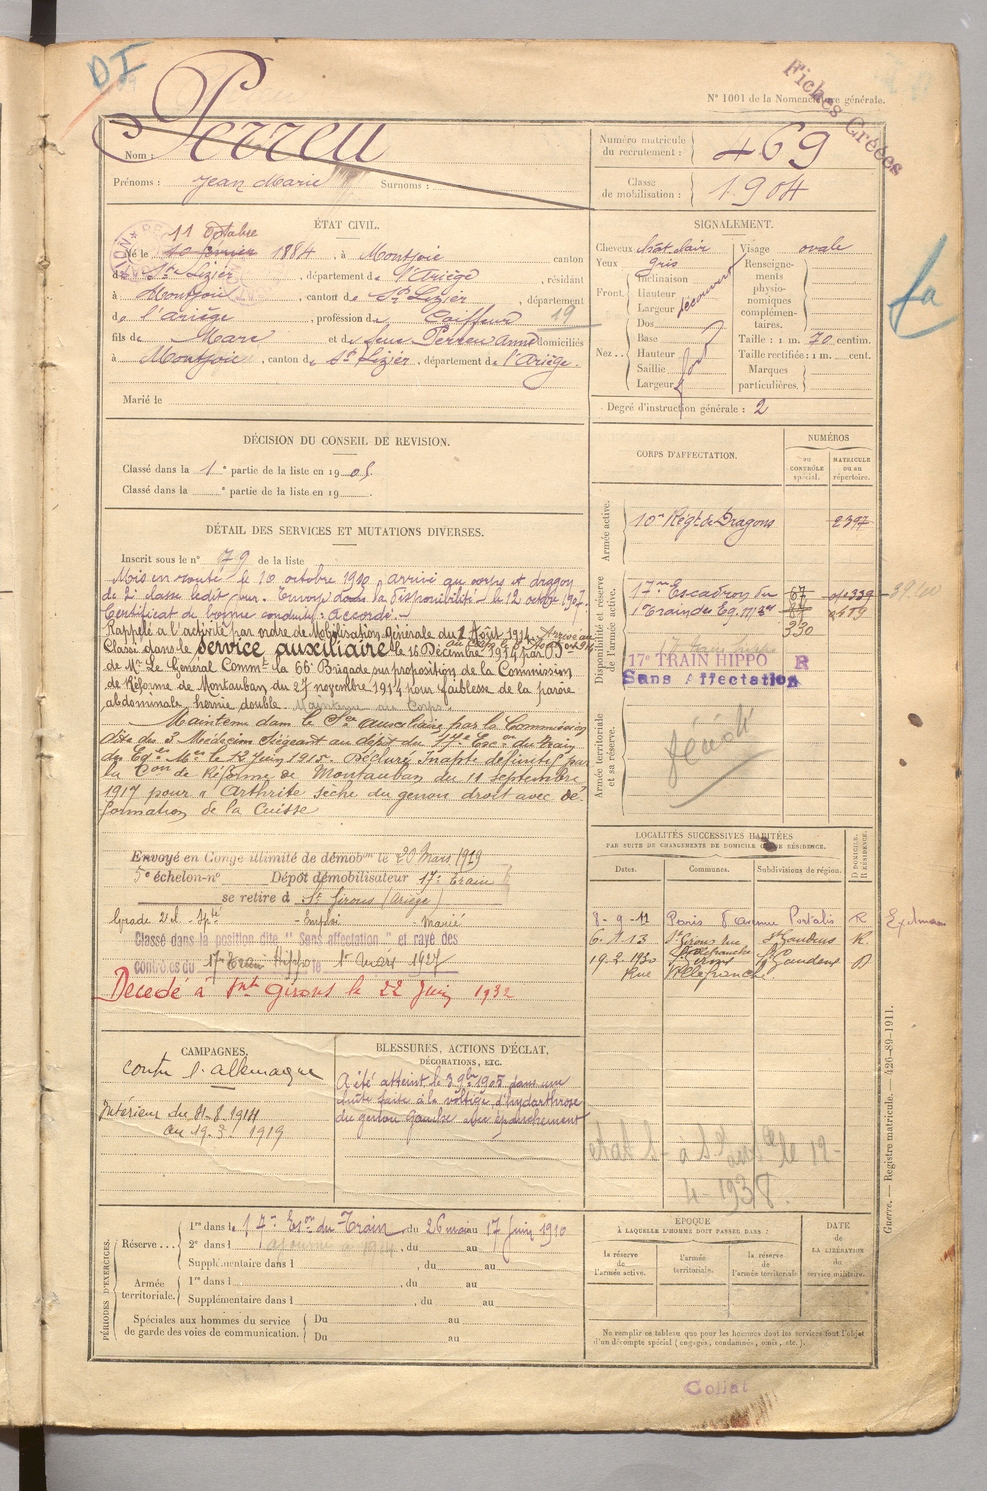 DI
Fiches Créées
N° 1001 de la Nomenclature générale.
Nom : Perreu
Prénoms : Jean Marie Surnoms :
Numéro matricule du recrutement : 469
Classe de mobilisation : 1904
ÉTAT CIVIL.
11 Octobre
Né le 10 février 1884, à Montjoie canton
de St Lizier, département de l'Ariège, résidant
à Montjoie, canton de St Lizier, département
de l'Ariège, profession de Coiffeur 19
fils de Marc et de feue Perreu Anne domiciliés
à Montjoie, canton de St Lizier, département de l'Ariège.
Marié le
SIGNALEMENT.
Cheveux chat clair
Yeux gris
Front. Inclinaison
Hauteur
Largeur découvert
Nez.. Dos
Base
Hauteur fort
Saillie
Largeur
Visage ovale
Renseignements physionomiques complémentaires.
Taille : 1 m. 70 centim.
Taille rectifiée : 1 m. cent.
Marques particulières.
Degré d'instruction générale : 2
La
DÉCISION DU CONSEIL DE REVISION.
Classé dans la 1e partie de la liste en 1905.
Classé dans la e partie de la liste en 19
DÉTAIL DES SERVICES ET MUTATIONS DIVERSES.
Inscrit sous le n° 79 de la liste
Mis en route le 10 octobre 1910 arrivé au corps et dragon
de 2e classe ledit jour. Envoyé dans la disponibilité le 12 octobre 1907.
Certificat de bonne conduite : Accordé.
Rappelé à l'activité par ordre de Mobilisation générale du 1 Août 1914. Arrivé au
Classé dans le service auxiliaire le 16 Décembre 1914 par Don
de Mr Le Général Commt la 66e Brigade sur proposition de la Commission
de Réforme de Montauban du 27 novembre 1914 pour faiblesse de la paroie
abdominale, hernie double. Maintenu au Corps.
Maintenu dans le Sce auxiliaire par la Commission
dite des 3 Médecins siégeant au dépôt du 17e Escon du train
des Eqes Mres le 12 Juin 1915. Déclaré Inapte définitif par
la Con de Réforme de Montauban du 11 septembre
1917 pour "Arthrite sèche du genou droit avec dé-
formation de la Cuisse
Envoyé en Congé illimité de démobon le 20 Mars 1919
5e échelon-n° Dépôt démobilisateur 17e Train
se retire à St Girons (Ariège)
Grade 2e cl. - Spte - Emploi - Marié
Classé dans la position dite "Sans affectation" et rayé des
contrôles du 17e Train Hippo le 1er mars 1927
Décédé à Snt Girons le 22 Juin 1932
CORPS D'AFFECTATION.
NUMÉROS
au CONTRÔLE spécial.
MATRICULE ou au répertoire.
Armée active.
10e Régt de Dragons 2397
Disponibilité et réserve de l'armée active.
17me Escadron du
Train des Eq. Mres
67
330
17e TRAIN HIPPO R
Sans Affectation
Armée territoriale et sa réserve.
LOCALITÉS SUCCESSIVES HABITÉES
PAR SUITE DE CHANGEMENTS DE DOMICILE OU DE RÉSIDENCE.
Dates. Communes. Subdivisions de région. D DOMICILE. R RÉSIDENCE.
8-9-11 Paris 8 avenue Portalis R
6.11.13 St Girons rue Villefranche St Gaudens R
19.2.1930 St Girons St Gaudens D
Rue Villefranche
CAMPAGNES.
Contre l'Allemagne
Intérieur du 31-8-1914
au 19.3.1919
BLESSURES, ACTIONS D'ÉCLAT,
DÉCORATIONS, ETC.
A été atteint le 3 9bre 1905 dans une
chute faite à la voltige d'hydarthrose
du genou gauche avec épanchement
4-1938.
PÉRIODES D'EXERCICES.
Réserve... 1re dans le 17e Eson du Train du 26 mai au 17 Juin 1910
2e dans l ajourné en 1914, du au
Supplémentaire dans l , du au
Armée territoriale. 1re dans l , du au
Supplémentaire dans l , du au
Spéciales aux hommes du service de garde des voies de communication. Du au
Du au
EPOQUE
À LAQUELLE L'HOMME DOIT PASSER DANS :
la réserve de l'armée active.
l'armée territoriale.
la réserve de l'armée territoriale
DATE DE LA LIBÉRATION du service militaire.
Ne remplir ce tableau que pour les hommes dont les services font l'objet
d'un décompte spécial (engagés, condamnés, omis, etc.).
Guerre. — Registre matricule. — 426-89-1911.
Collat